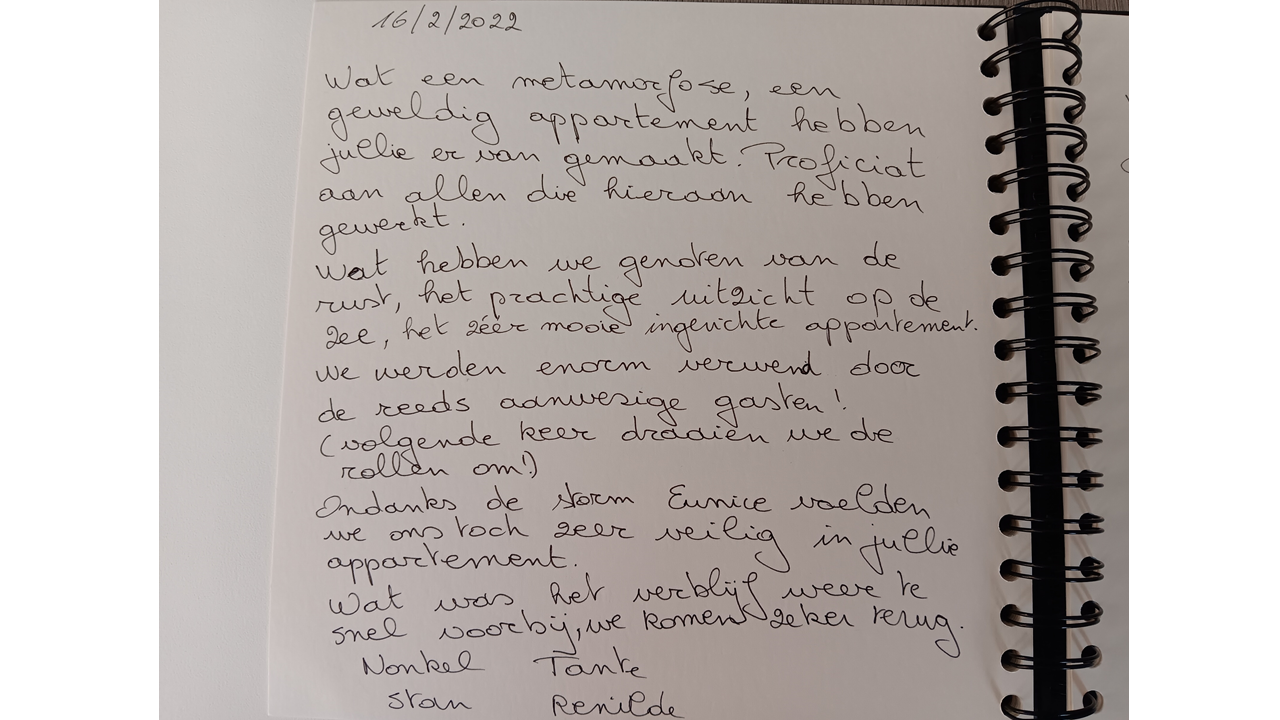 16/2/2022
Wat een metamorfose, een
geweldig appartement hebben
jullie er van gemaakt. Proficiat
aan allen die hieraan hebben
gewerkt.
Wat hebben we genoten van de
rust, het prachtige uitzicht op de
zee, het zéér mooie ingerichte appartement.
We werden enorm verwend door
de reeds aanwezige gasten!
(volgende keer draaien we de
rollen om!)
Ondanks de storm Eunice voelden
we ons toch zeer veilig in jullie
appartement.
Wat was het verblijf weer te
snel voorbij, we komen zeker terug.
Nonkel Tante
Stan Renilde